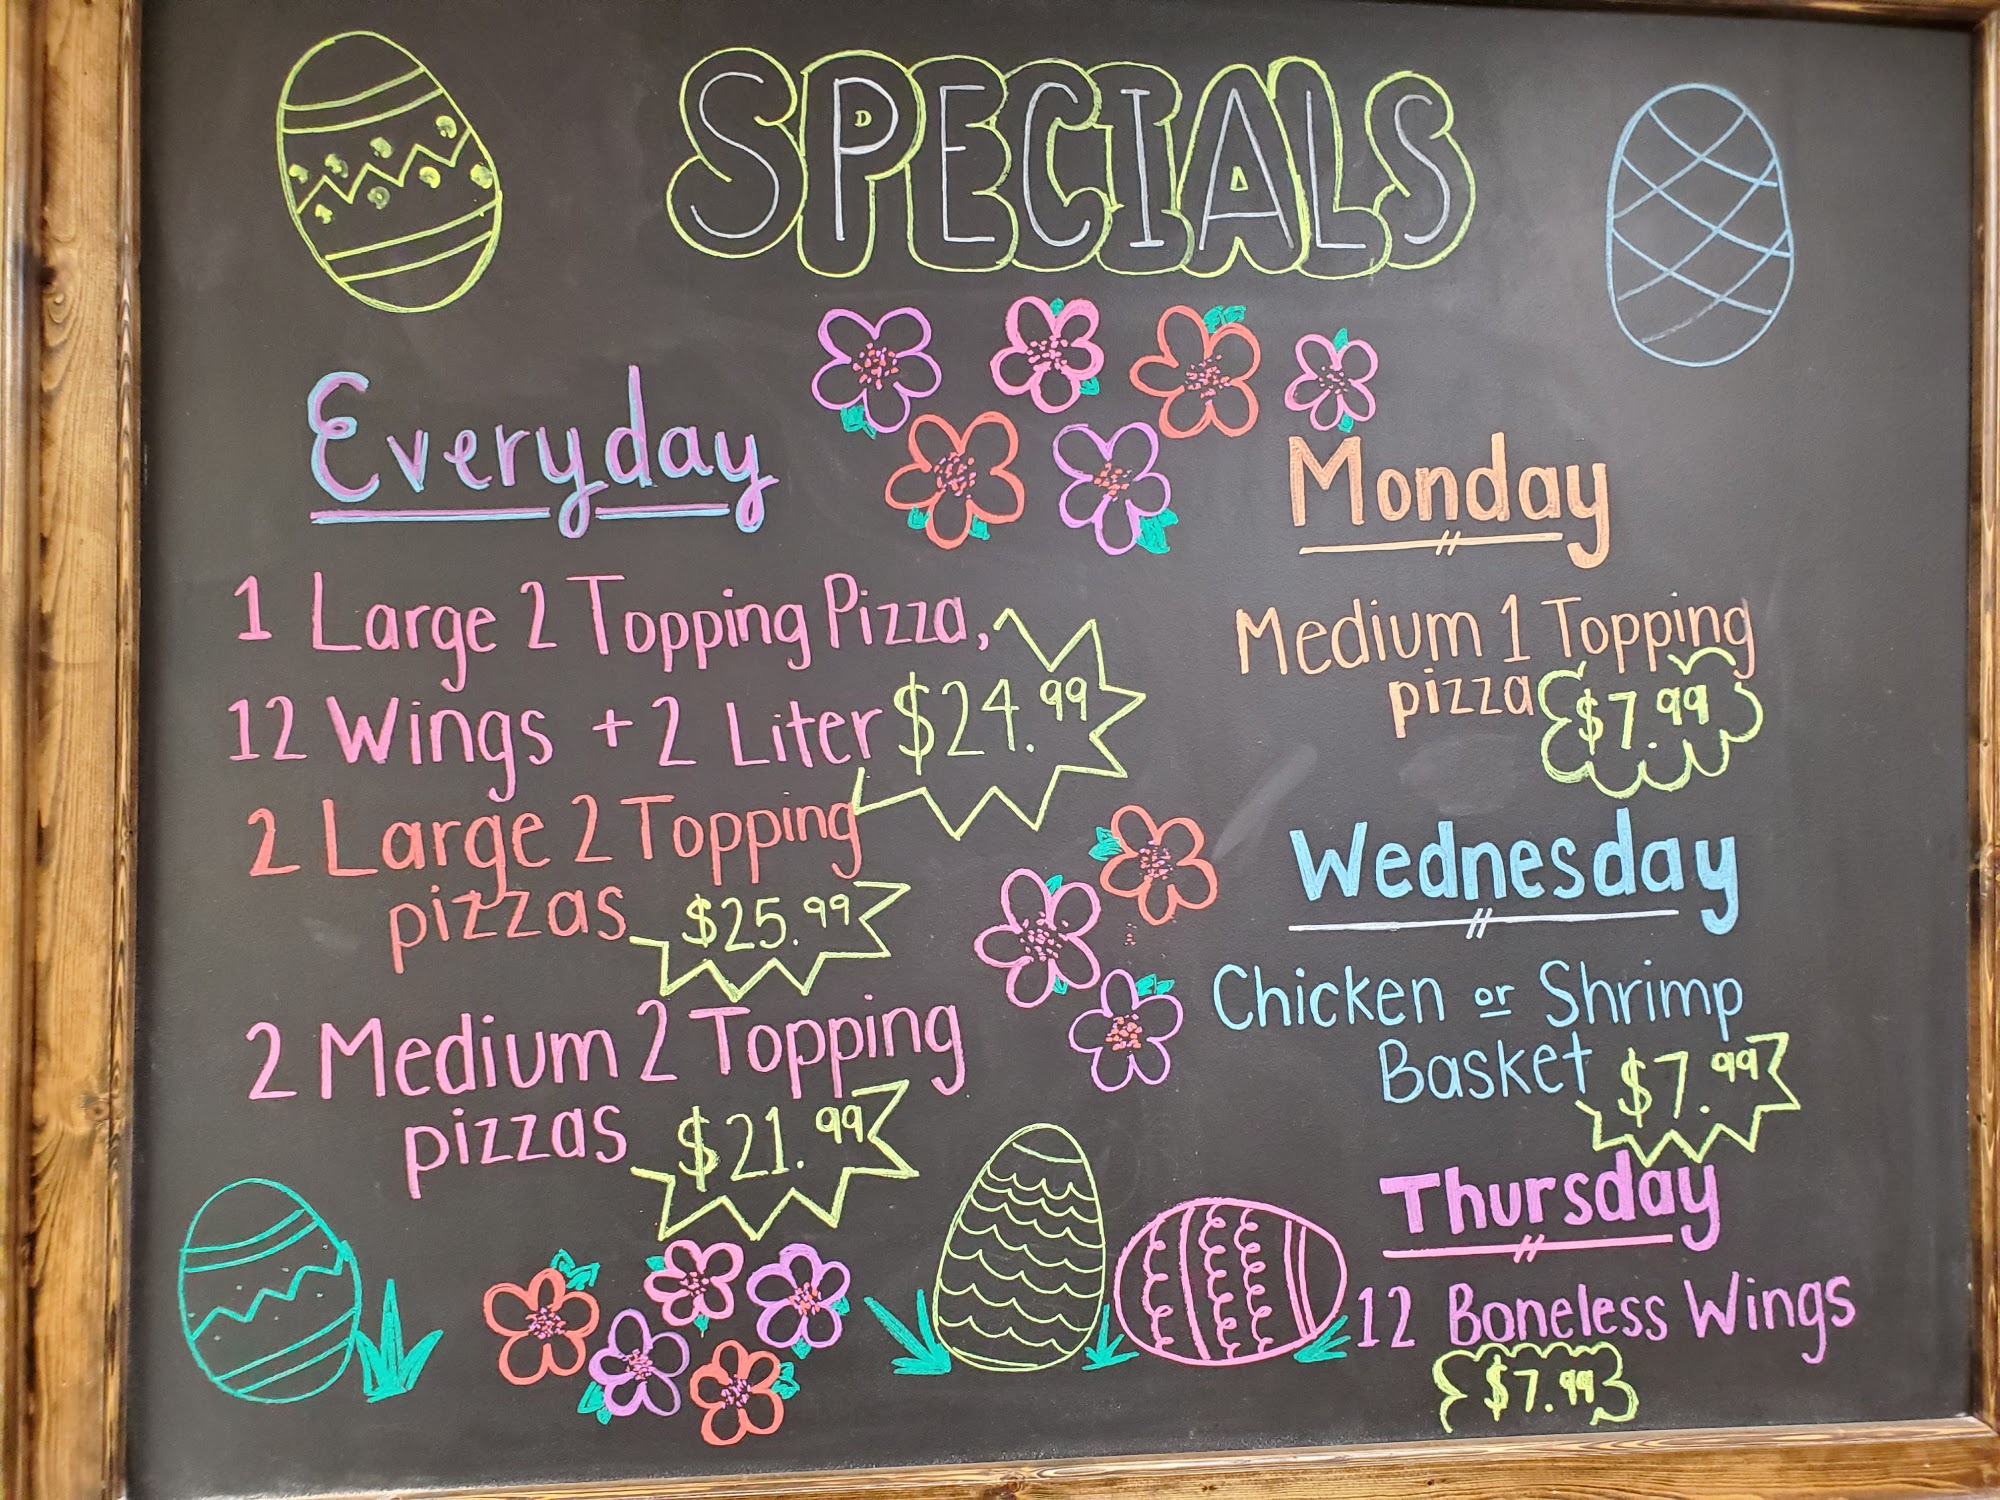 SPECIALS
Everyday
1 Large 2 Topping Pizza,
12 Wings + 2 Liter $24.99
2 Large 2 Topping
pizzas $25.99
2 Medium 2 Topping
pizzas $21.99
Monday
Medium 1 Topping
pizza $7.99
Wednesday
Chicken or Shrimp
Basket $7.99
Thursday
12 Boneless Wings
$7.99